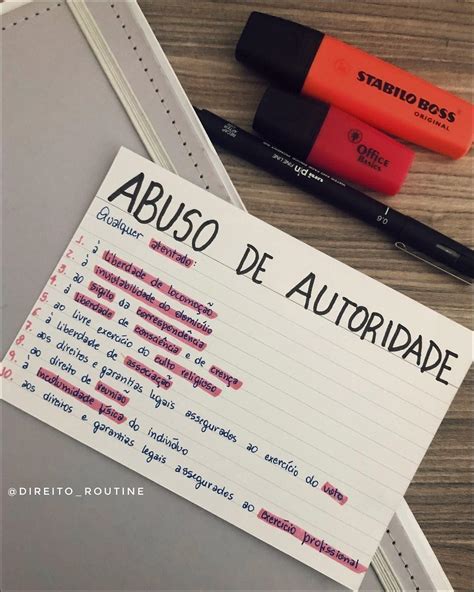 STABILO BOSS
ORIGINAL
Office
Basics
uni pin FINE LINE
ABUSO DE AUTORIDADE
Qualquer atentado:
1. à liberdade de locomoção
2. à inviolabilidade do domicílio
3. ao sigilo da correspondência
4. à liberdade de consciência e de crença
5. ao livre exercício do culto religioso
6. à liberdade de associação
7. aos direitos e garantias legais assegurados ao exercício do voto
8. ao direito de reunião
9. à incolumidade física do indivíduo
10. aos direitos e garantias legais assegurados ao exercício profissional
@DIREITO_ROUTINE